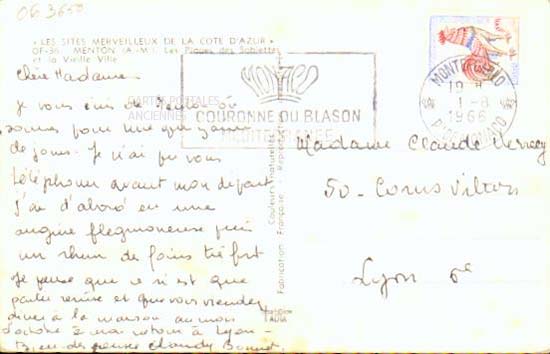 06 3650
" LES SITES MERVEILLEUX DE LA COTE D'AZUR "
OF-36 MENTON (A.-M.). Les Plages des Sablettes
et la Vieille Ville
Chère Madame
Je vous écris de Menton où
sommes pour une quinzaine
de jours. Je n'ai pu vous
téléphoner avant mon départ
J'ai d'abord eu une
angine flegmoneuse puis
un rhume des foins très fort
Je pense que ce n'est que
partie remise et que vous viendrez
diner à la maison au mois
d'octobre à mon retour à Lyon -
Bien des pensées Claudy
MONACO
COURONNE DU BLASON
CARTES POSTALES
ANCIENNES
MONTE-CARLO
19 H
1 - 8
1966
Pte DE MONACO
Couleurs naturelles
Fabrication Française - Reproduction
Madame Claude
50 - Cours Vitton
Lyon 6e